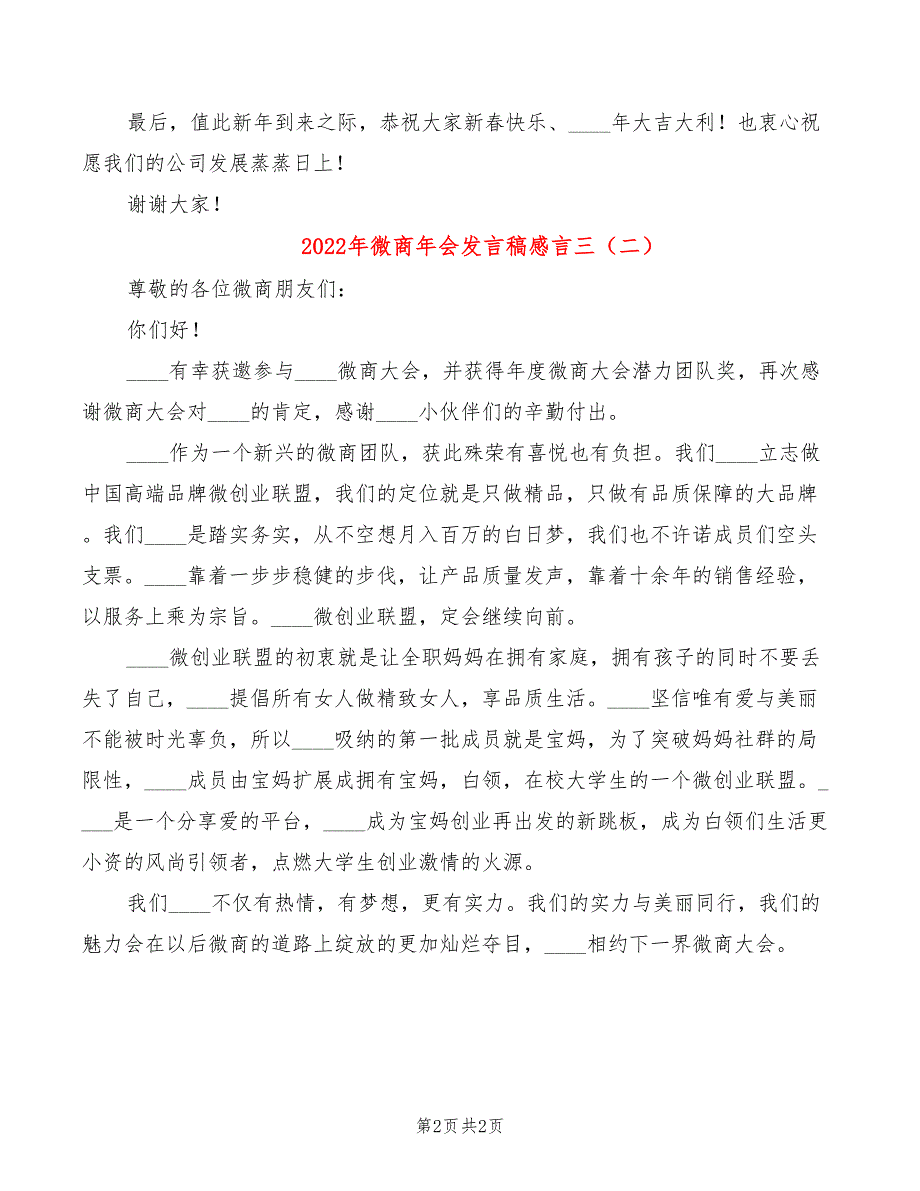 最后，值此新年到来之际，恭祝大家新春快乐、____年大吉大利！也衷心祝
愿我们的公司发展蒸蒸日上！
谢谢大家！
2022年微商年会发言稿感言三（二）
尊敬的各位微商朋友们：
你们好！
____有幸获邀参与____微商大会，并获得年度微商大会潜力团队奖，再次感
谢微商大会对____的肯定，感谢____小伙伴们的辛勤付出。
____作为一个新兴的微商团队，获此殊荣有喜悦也有负担。我们____立志做
中国高端品牌微创业联盟，我们的定位就是只做精品，只做有品质保障的大品牌
。我们____是踏实务实，从不空想月入百万的白日梦，我们也不许诺成员们空头
支票。____靠着一步步稳健的步伐，让产品质量发声，靠着十余年的销售经验，
以服务上乘为宗旨。____微创业联盟，定会继续向前。
____微创业联盟的初衷就是让全职妈妈在拥有家庭，拥有孩子的同时不要丢
失了自己，____提倡所有女人做精致女人，享品质生活。____坚信唯有爱与美丽
不能被时光辜负，所以____吸纳的第一批成员就是宝妈，为了突破妈妈社群的局
限性，____成员由宝妈扩展成拥有宝妈，白领，在校大学生的一个微创业联盟。_
___是一个分享爱的平台，____成为宝妈创业再出发的新跳板，成为白领们生活更
小资的风尚引领者，点燃大学生创业激情的火源。
我们____不仅有热情，有梦想，更有实力。我们的实力与美丽同行，我们的
魅力会在以后微商的道路上绽放的更加灿烂夺目，____相约下一界微商大会。
第2页 共2页